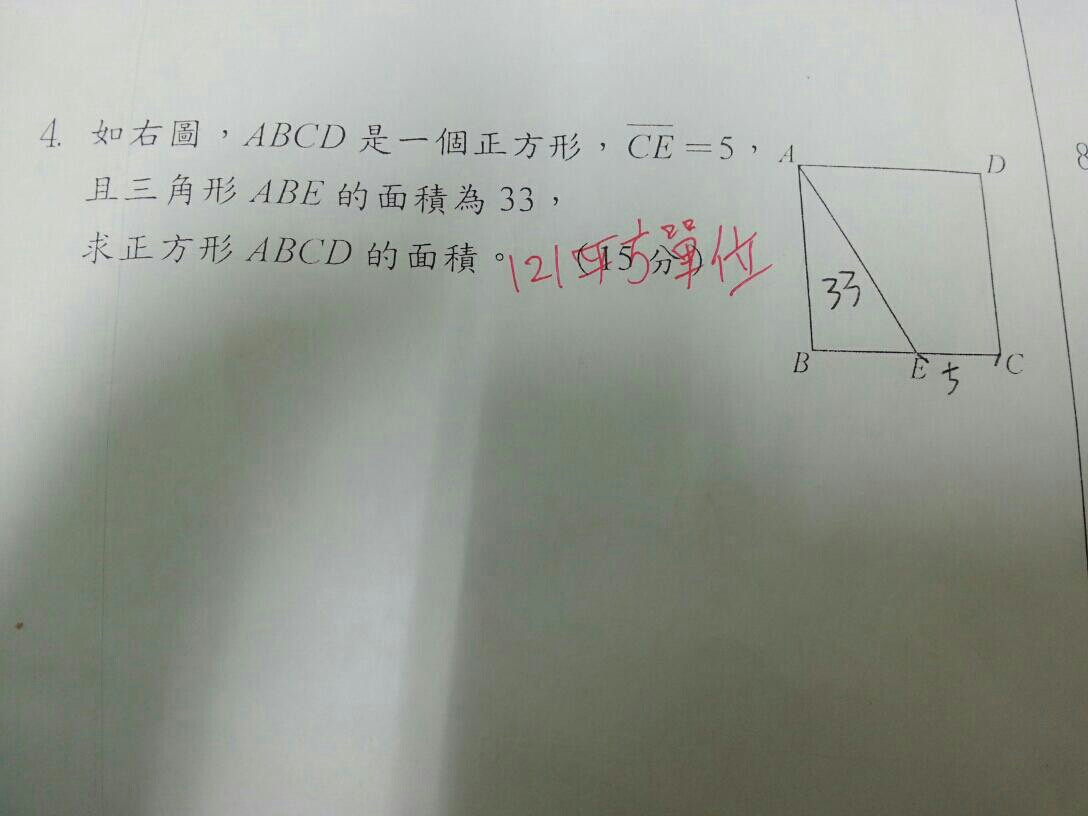 4. 如右圖，ABCD 是一個正方形，CE＝5，
且三角形 ABE 的面積為 33，
求正方形 ABCD 的面積。（15 分）
121平方單位
A
D
33
B
E
5
C
8